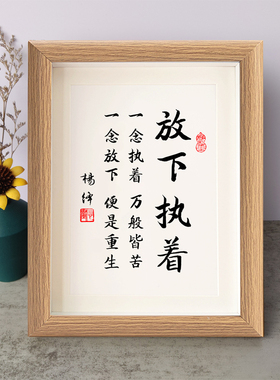 放下执着
一念执着 万般皆苦
一念放下 便是重生
杨绛